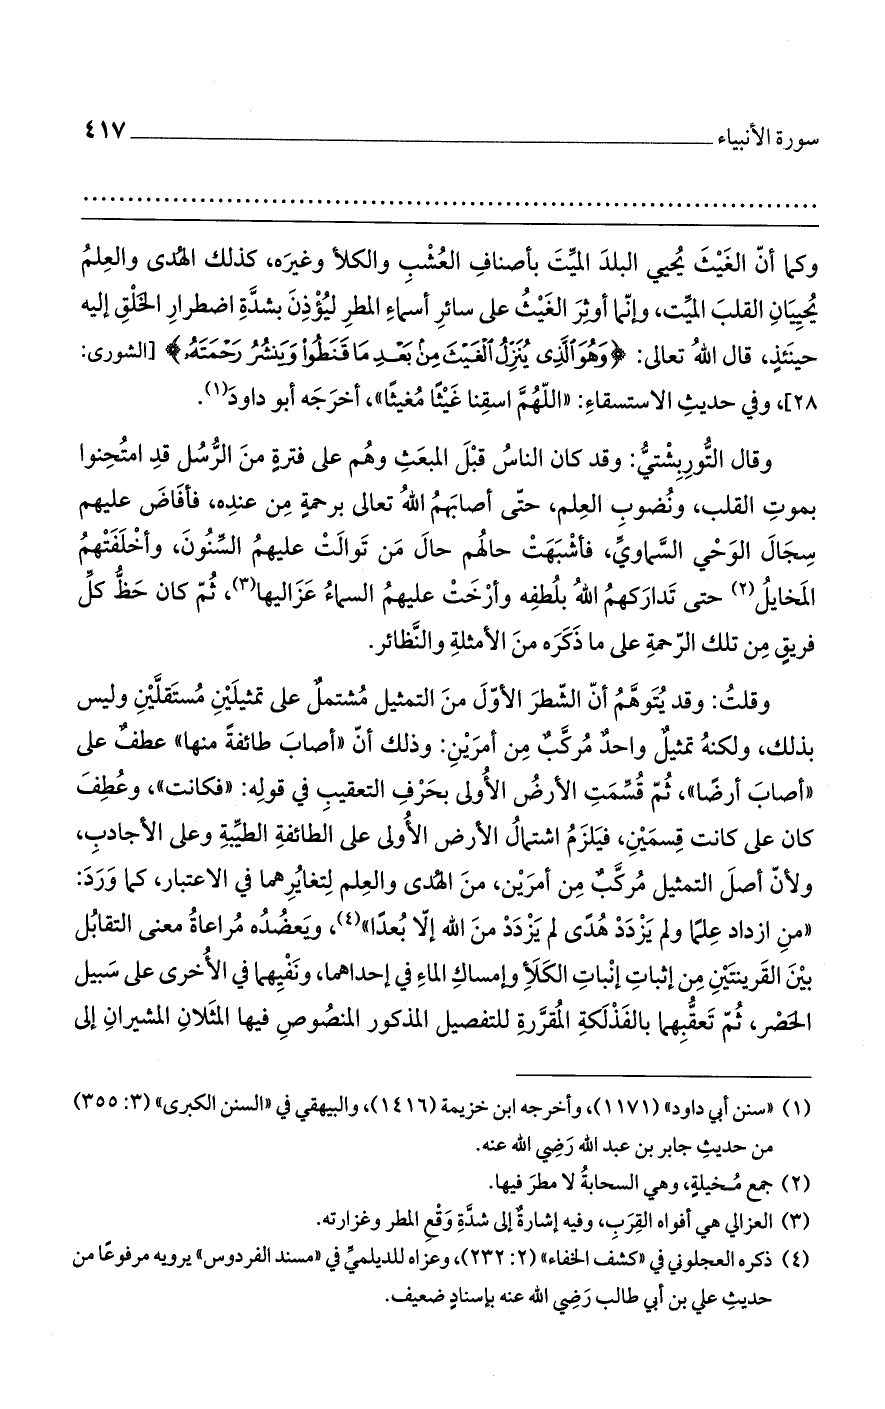 سورة الأنبياء ٤١٧
وكما أنّ الغَيْثَ يُحيي البلدَ الميِّتَ بأصنافِ العُشْبِ والكلأ وغيرَه، كذلك الهُدى والعِلمُ
يُحيِيَانِ القلبَ الميِّت، وإنّما أوثِرَ الغَيْثُ على سائرِ أسماءِ المطرِ ليُؤْذِنَ بشدَّةِ اضطرارِ الخَلْقِ إليه
حينئذٍ، قال اللهُ تعالى: ﴿وَهُوَ ٱلَّذِى يُنَزِّلُ ٱلْغَيْثَ مِنۢ بَعْدِ مَا قَنَطُوا۟ وَيَنشُرُ رَحْمَتَهُۥ﴾ [الشورى:
٢٨]، وفي حديثِ الاستسقاءِ: «اللّهُمَّ اسقِنا غَيْثًا مُغيثًا»، أخرَجَه أبو داودَ(١).
وقال التُّورِبِشْتيُّ: وقد كان الناسُ قبْلَ المبعَثِ وهُم على فترةٍ منَ الرُّسُل قدِ امتُحِنوا
بموتِ القلب، ونُضوبِ العِلم، حتّى أصابَهُمُ اللهُ تعالى برحمةٍ مِن عندِه، فأفَاضَ عليهم
سِجَالَ الوَحْي السَّماويِّ، فأشْبَهَتْ حالُهم حالَ مَن تَوالَتْ عليهمُ السِّنُونَ، وأخْلَفَتْهمُ
المَخايلُ(٢) حتى تَدارَكهمُ اللهُ بلُطفِه وأرْخَتْ عليهمُ السماءُ عَزَاليها(٣)، ثُمّ كان حَظُّ كلِّ
فريقٍ مِن تلك الرّحمةِ على ما ذَكَرَه منَ الأمثلةِ والنَّظائر.
وقلتُ: وقد يُتَوهَّمُ أنّ الشّطرَ الأوّلَ منَ التمثيل مُشتملٌ على تمثيلَيْنِ مُستَقلَّيْنِ وليس
بذلك، ولكنهُ تمثيلٌ واحدٌ مُركَّبٌ مِن أمرَيْنِ: وذلك أنّ «أصابَ طائفةً منها» عطفٌ على
«أصابَ أرضًا»، ثُمّ قُسِّمَتِ الأرضُ الأُولى بحَرْفِ التعقيبِ في قولِه: «فكانت»، وعُطِفَ
كان على كانت قِسمَيْنِ، فيَلزَمُ اشتمالُ الأرضِ الأُولى على الطائفةِ الطيِّبةِ وعلى الأجادبِ،
ولأنّ أصلَ التمثيلِ مُركَّبٌ مِن أمرَيْن، منَ الهُدى والعِلم لِتغايُرِهما في الاعتبار، كما وَرَدَ:
«منِ ازداد عِلمًا ولم يَزْدَدْ هُدًى لم يَزْدَدْ منَ الله إلّا بُعدًا»(٤)، ويَعضُدُه مُراعاةُ معنى التقابُل
بيْنَ القرينتَيْنِ مِن إثباتِ إنْباتِ الكَلَأِ وإمساكِ الماءِ في إحداهما، ونَفْيِهما في الأُخرى على سَبيل
الحَصْر، ثُمّ تَعقُّبِهما بالفَذْلَكةِ المُقرَّرةِ للتفصيل المذكور المنصُوصِ فيها المَثَلانِ المشيرانِ إلى
(١) «سنن أبي داود» (١١٧١)، وأخرجه ابن خزيمة (١٤١٦)، والبيهقي في «السنن الكبرى» (٣: ٣٥٥)
من حديثِ جابر بن عبد الله رَضِي الله عنه.
(٢) جمع مُـخيلةٍ، وهي السحابةُ لا مطرَ فيها.
(٣) العزالي هي أفواه القِرَبِ، وفيه إشارةٌ إلى شدَّةِ وَقْعِ المطر وغزارته.
(٤) ذكره العجلوني في «كشف الخفاء» (٢: ٢٣٢)، وعزاه للديلميِّ في «مسند الفردوس» يرويه مرفوعًا من
حديثِ علي بن أبي طالب رَضِي الله عنه بإسنادٍ ضعيف.